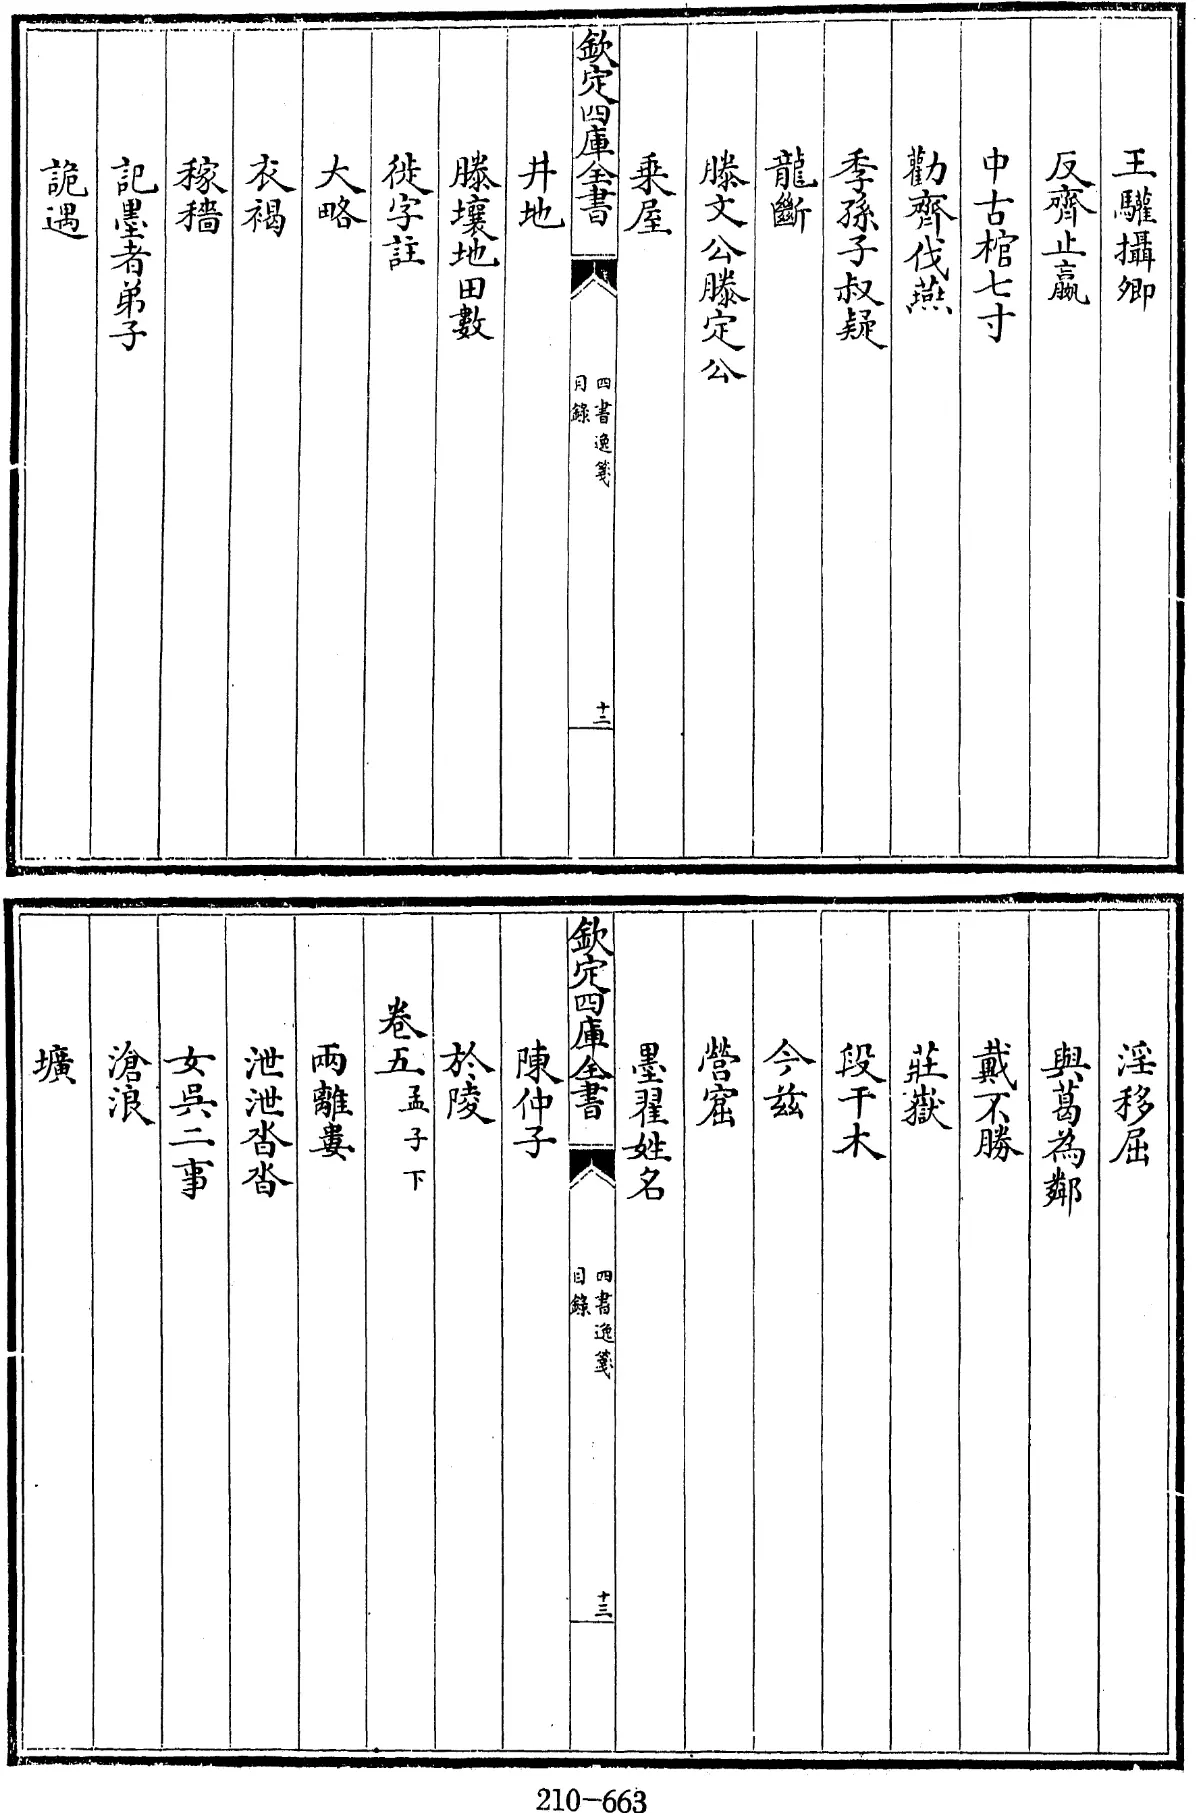 王驩攝卿
反齊止嬴
中古棺七寸
勸齊伐燕
季孫子叔疑
龍斷
滕文公滕定公
乗屋
欽定四庫全書
四書逸箋
目錄
十二
井地
滕壤地田數
徙字註
大略
衣褐
稼穡
記墨者弟子
詭遇
淫移屈
與葛為鄰
戴不勝
莊嶽
段干木
今兹
營窟
墨翟姓名
欽定四庫全書
四書逸箋
目錄
十三
陳仲子
於陵
卷五孟子下
兩離婁
泄泄沓沓
女吳二事
滄浪
壙
210-663